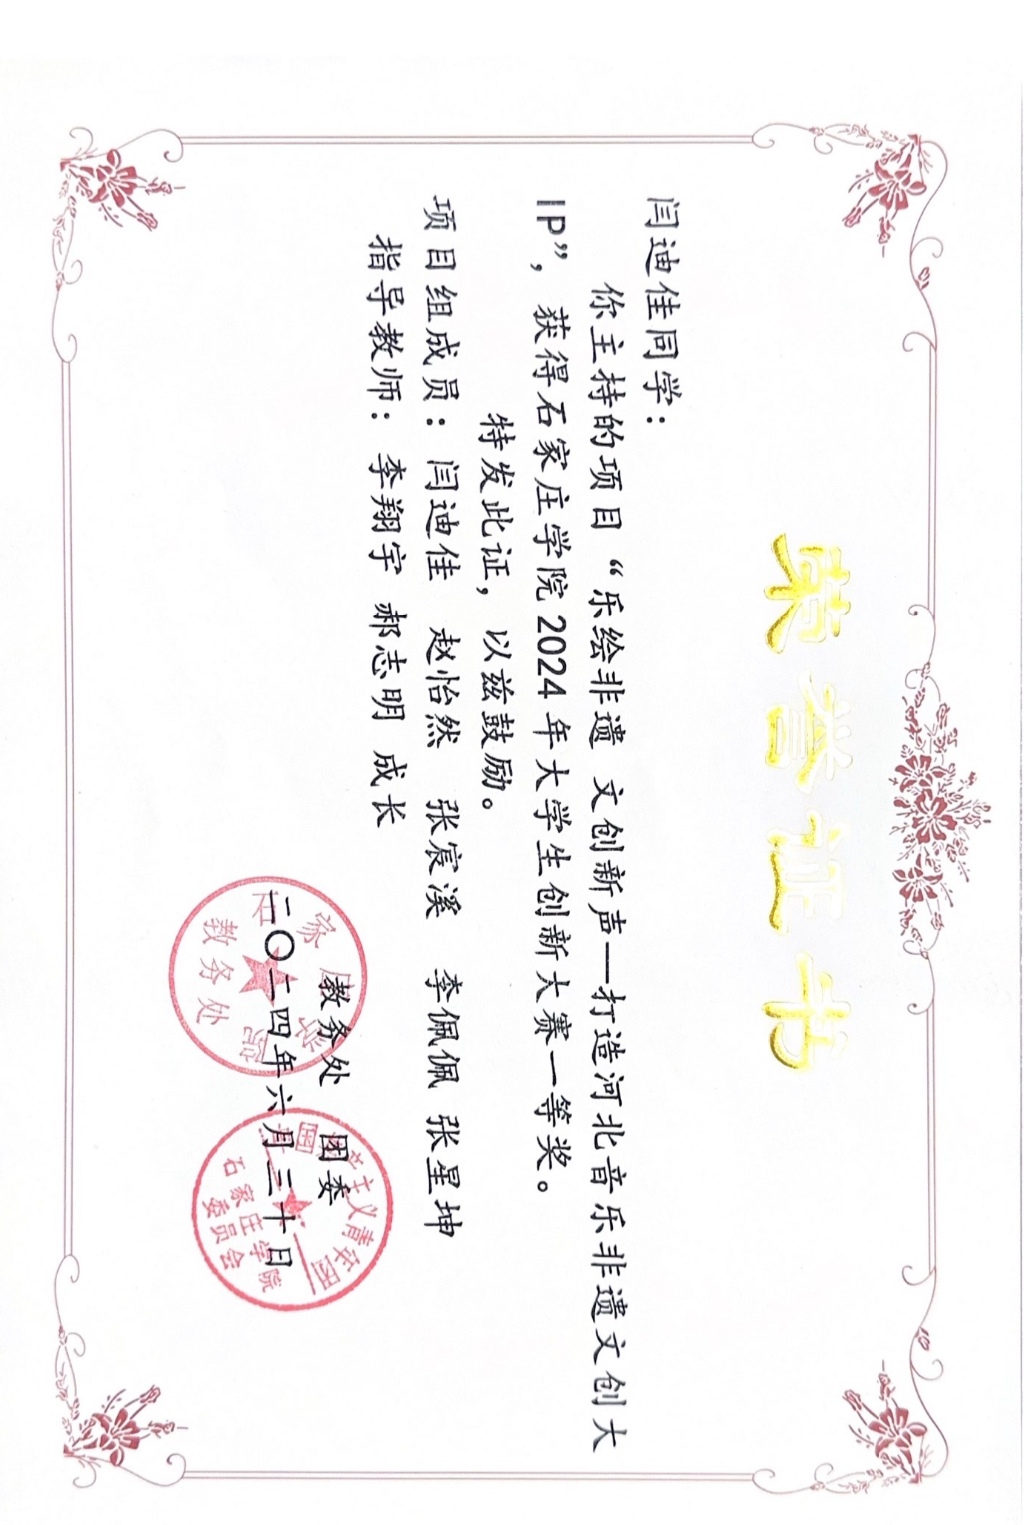 荣誉证书
闫迪佳同学：
你主持的项目“乐绘非遗 文创新声—打造河北音乐非遗文创大
IP”，获得石家庄学院2024年大学生创新大赛一等奖。
特发此证，以兹鼓励。
项目组成员：闫迪佳 赵怡然 张宸溪 李佩佩 张星坤
指导教师：李翔宇 郝志明 成长
教务处 团委
二〇二四年六月三十日
石家庄学院
教务处
中国共产主义青年团
石家庄学院
委员会